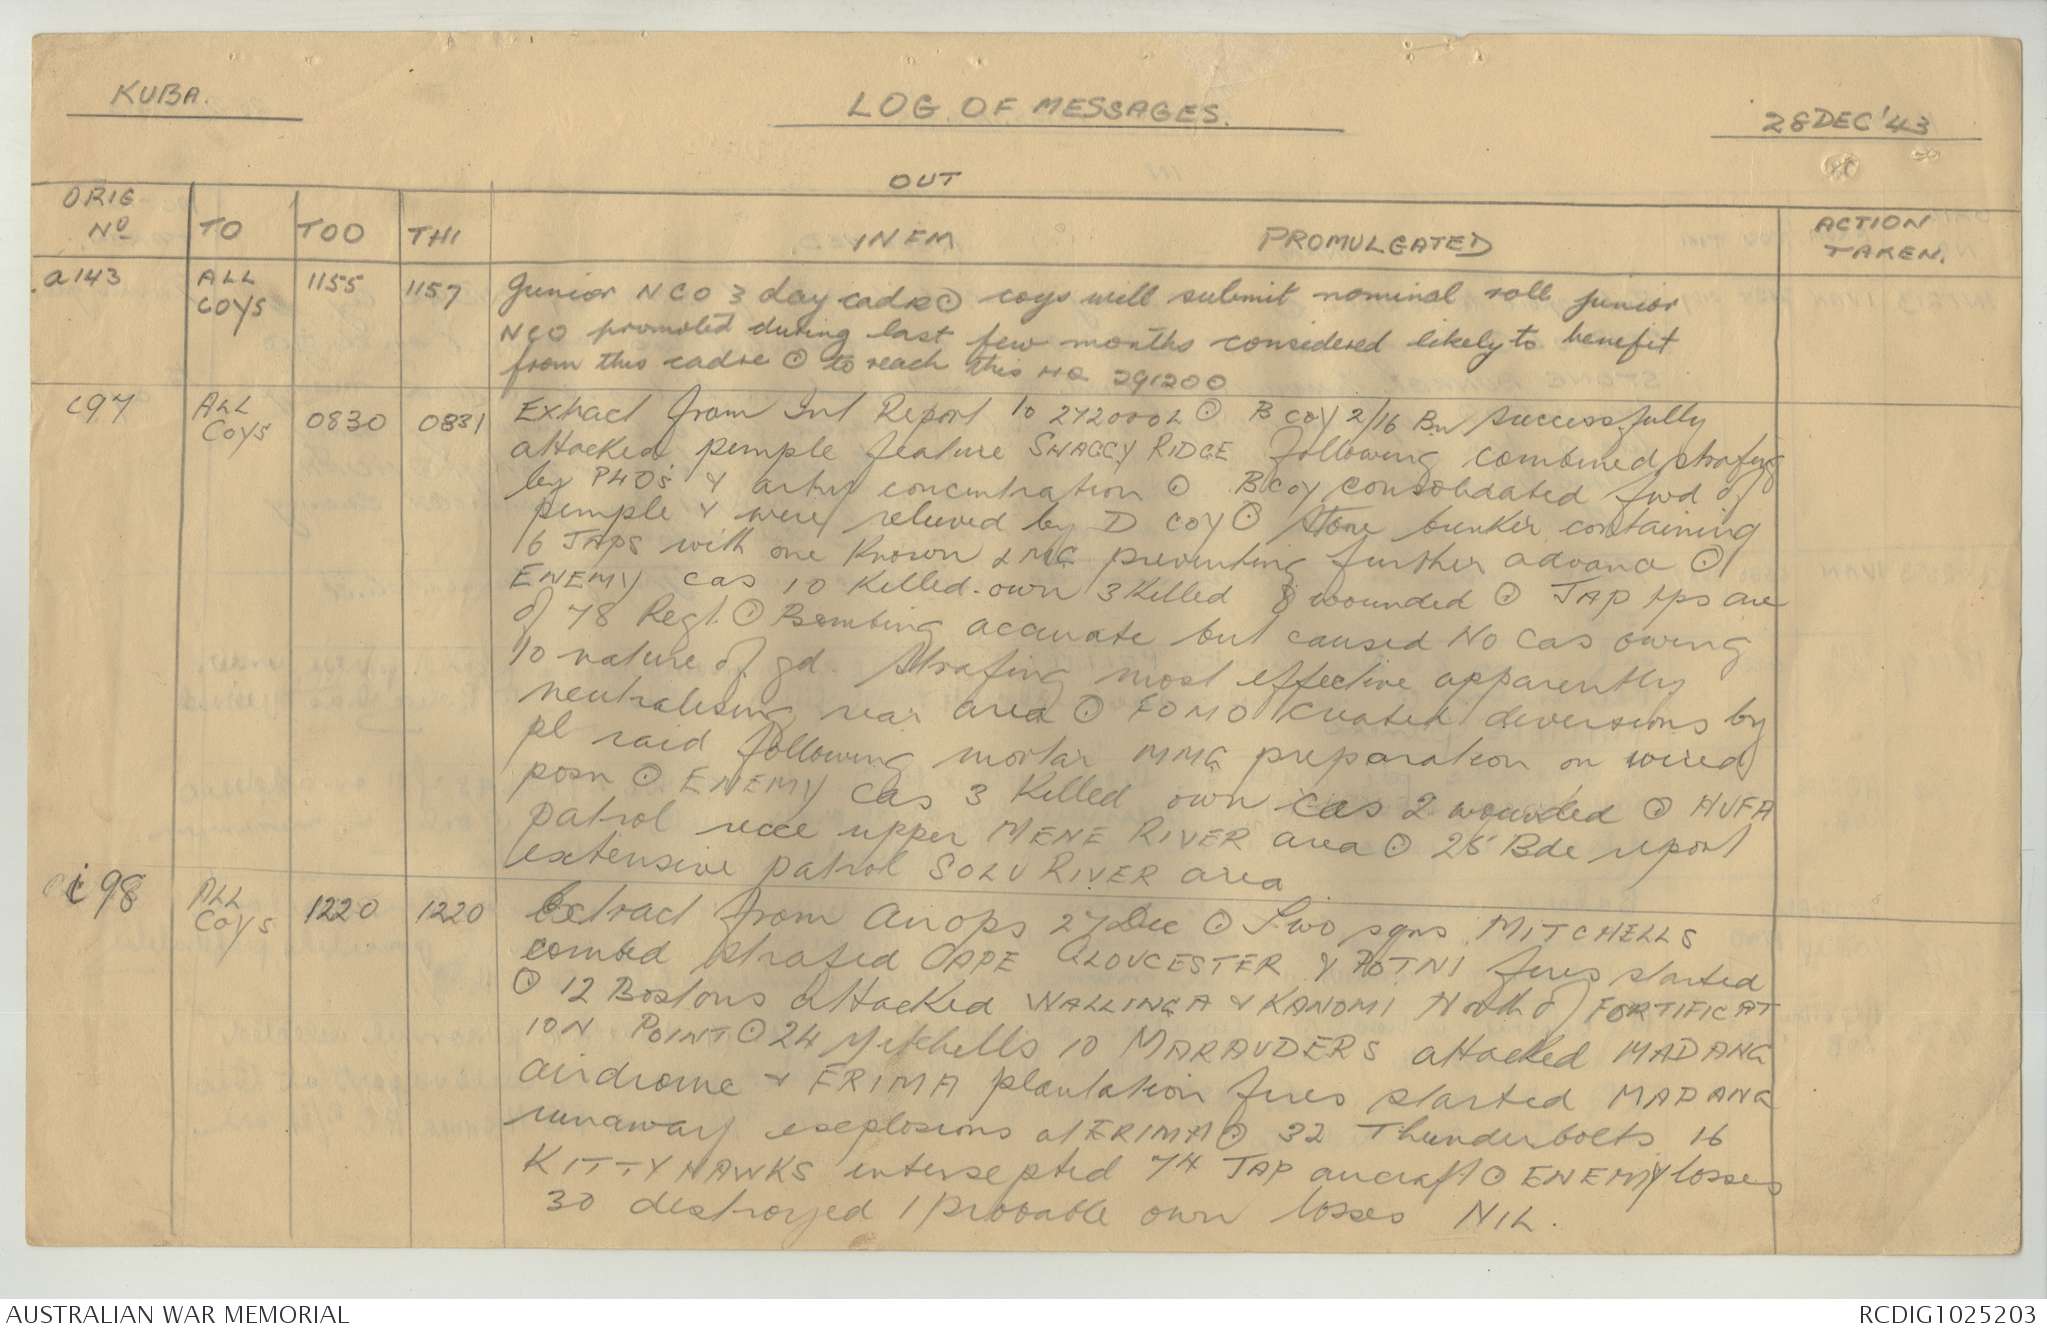 KUBA.
LOG OF MESSAGES.
28 DEC '43
OUT
ORIG Nº
TO
TOO
THI
INFM PROMULGATED
ACTION TAKEN.
a143 ALL COYS 1155 1157
Junior NCO 3 day cadre ⊙ coys will submit nominal roll junior
NCO promoted during last few months considered likely to benefit
from this cadre ⊙ to reach this HQ 291200
c97 ALL COYS 0830 0831
Extract from Int Report to 272000L ⊙ B coy 2/16 Bn successfully
attacked pimple feature SHAGGY RIDGE following combined strafing
by P40s & arty concentration ⊙ B Coy consolidated fwd of
pimple & were relieved by D COY ⊙ Stone bunker containing
6 JAPS with one known LMG preventing further advance ⊙
ENEMY cas 10 killed. own 3 killed 8 wounded ⊙ JAP tps are
of 78 Regt. ⊙ Bombing accurate but caused No cas owing
to nature of gd. Strafing most effective apparently
neutralising rear area ⊙ FOMO created diversions by
pl raid following mortar MMG preparation on wired
posn ⊙ ENEMY cas 3 killed own cas 2 wounded ⊙ HUFA
patrol recce upper MENE RIVER area ⊙ 25 Bde report
extensive patrol SOLU RIVER area
i98 ALL COYS 1220 1220
Extract from Airops 27 Dec ⊙ Two sqns MITCHELLS
combed strafed CAPE GLOUCESTER & POTNI fires started
⊙ 12 Bostons attacked WALLINGA & KANOMI North of FORTIFICAT
ION POINT ⊙ 24 Mitchells 10 MARAUDERS attacked MADANG
airdrome & ERIMA plantation fires started MADANG
runaway explosions at ERIMA ⊙ 32 Thunderbolts 16
KITTYHAWKS intersepted 74 JAP aircraft ⊙ ENEMY losses
30 destroyed 1 probable own losses NIL.
AUSTRALIAN WAR MEMORIAL
RCDIG1025203